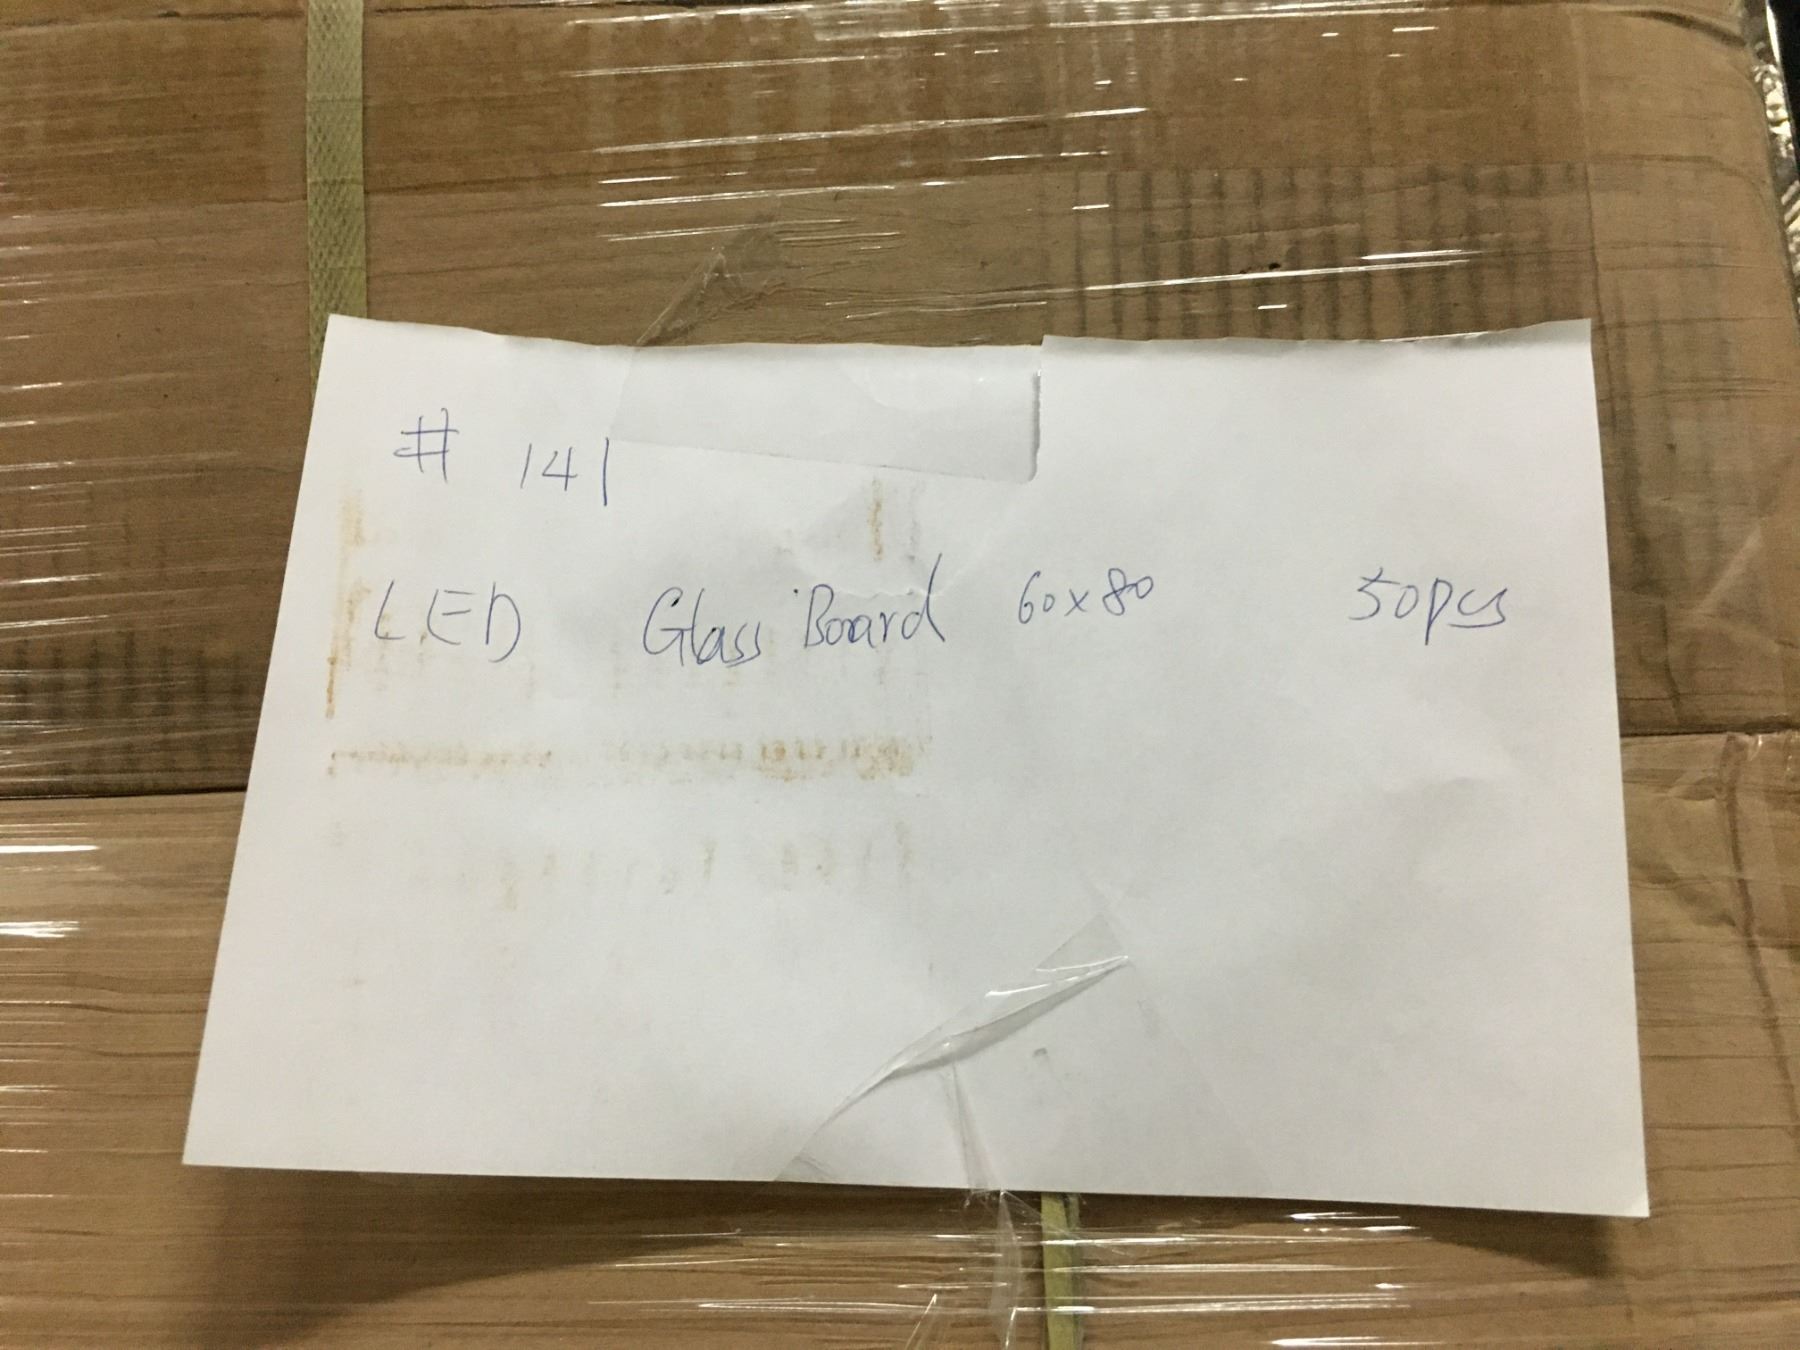 # 141
LED Glass Board 60x80 50pcs